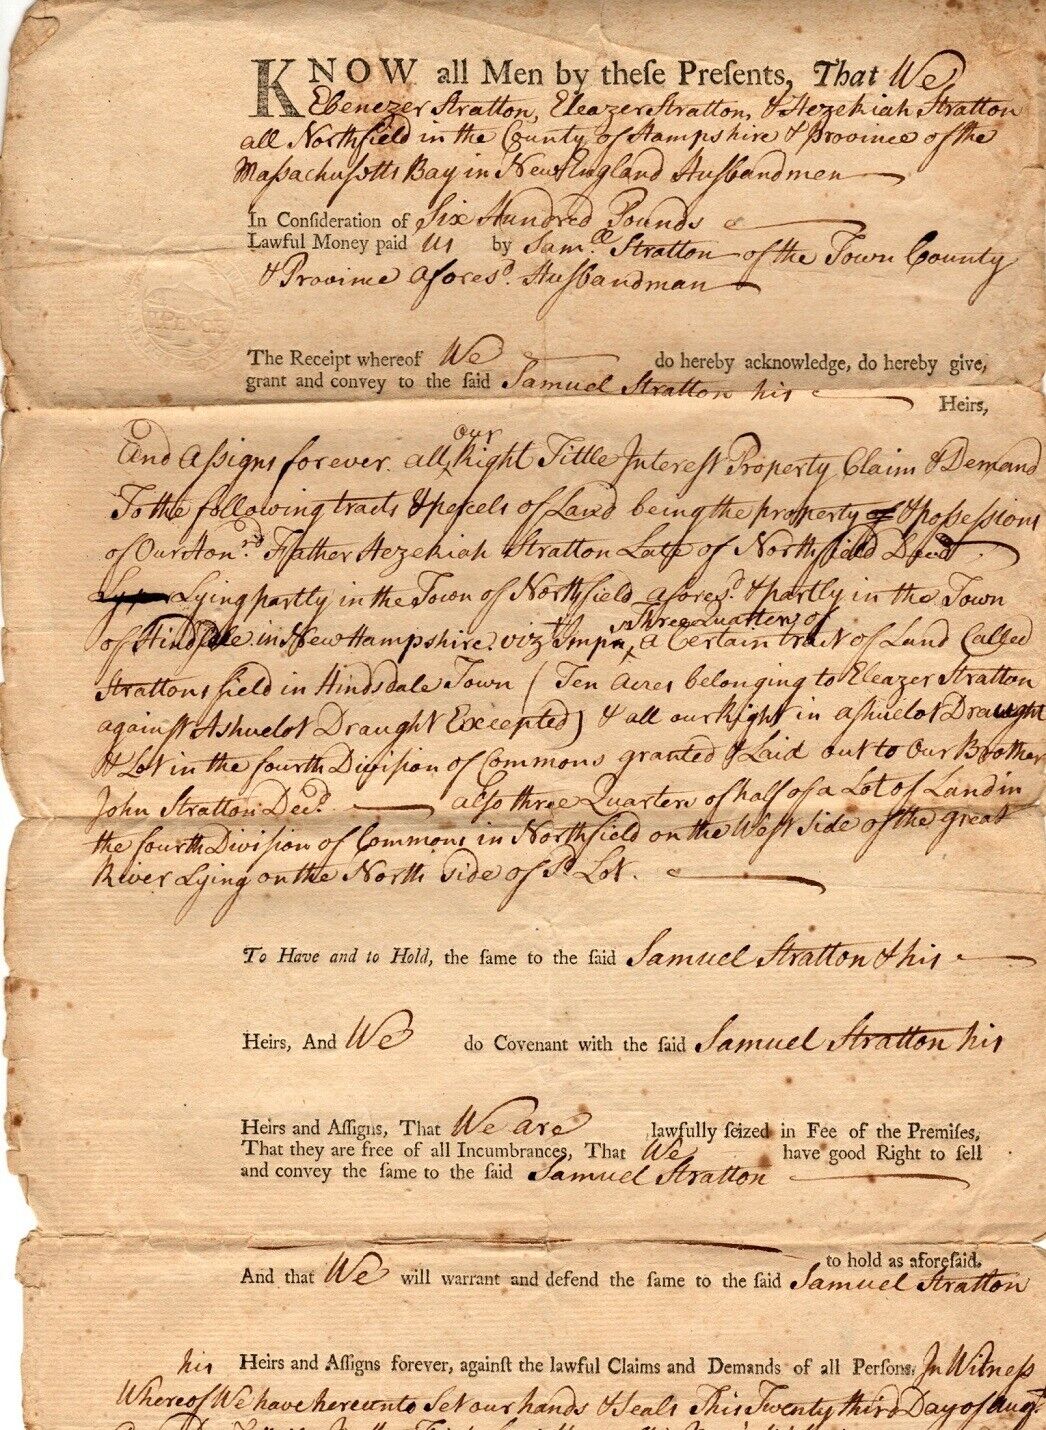 KNOW all Men by theſe Preſents, That We
Ebenezer Stratton, Eleazer Stratton, & Hezekiah Stratton
all Northfield in the County of Hampshire & Province of the
Maſsachuſetts Bay in New England Huſbandmen
In Conſideration of Six Hundred Pounds
Lawful Money paid us by Sam.ll Stratton of the Town County
& Province aforesd. Huſbandman
The Receipt whereof We do hereby acknowledge, do hereby give,
grant and convey to the ſaid Samuel Stratton his
Heirs,
And Aſsigns forever all our Right Tittle Intereſt Property Claim & Demand
To the following tracts & percels of Land being the property of & poſseſsions
of Our Hon.rd Father Hezekiah Stratton Late of Northfield Decd.
Lying partly in the Town of Northfield aforesd. & partly in the Town
of Hindſdale in New Hampshire. viz.t Impr. Three Quarters of a Certain tract of Land Called
Strattons field in Hindsdale Town (Ten Acres belonging to Eleazer Stratton
against Ashuelot Draught Excepted) & all our Right in ashuelot Draught
& Lot in the fourth Diviſion of Commons granted & Laid out to Our Brother
John Stratton Decd. also three Quarters of half of a Lot of Land in
the fourth Diviſion of Commons in Northfield on the West Side of the great
River Lying on the North side of Sd. Lot.
To Have and to Hold, the ſame to the ſaid Samuel Stratton & his
Heirs, And We do Covenant with the ſaid Samuel Stratton his
Heirs and Aſſigns, That We are lawfully ſeized in Fee of the Premiſes,
That they are free of all Incumbrances, That We have good Right to ſell
and convey the ſame to the ſaid Samuel Stratton
to hold as aforeſaid.
And that We will warrant and defend the ſame to the ſaid Samuel Stratton
his Heirs and Aſſigns forever, againſt the lawful Claims and Demands of all Perſons, In Witneſs
Whereof We have hereunto Set our hands & Seals This Twenty third Day of Augt.